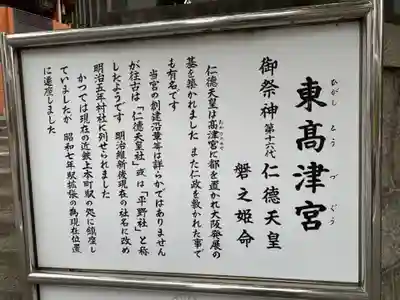 東高津宮
ひがし こうづぐう
御祭神 第十六代 仁徳天皇
磐之姫命
仁徳天皇は高津宮に都を置かれ大阪発展の
基を築かれました また仁政を敷かれた事で
も有名です
当宮の創建沿革等は詳らかではありません
が往古は「仁徳天皇社」或は「平野社」と称
したようです 明治維新後現在の社名に改め
明治五年村社に列せられました
かつては現在の近鉄上本町駅の処に鎮座し
ていましたが 昭和七年駅拡張の為現在位置
に遷座しました